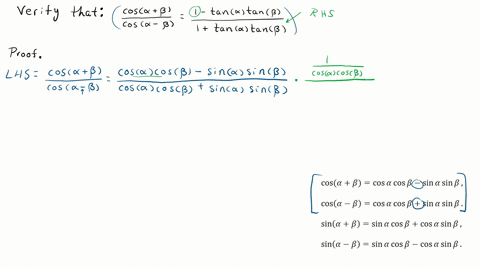 Verify that: ( cos(α+β) / cos(α-β) = 1 - tan(α)tan(β) / 1 + tan(α)tan(β) ) RHS
Proof.
LHS = cos(α+β) / cos(α-β) = cos(α)cos(β) - sin(α)sin(β) / cos(α)cos(β) + sin(α)sin(β) · 1 / cos(α)cos(β)
cos(α + β) = cos α cos β − sin α sin β,
cos(α − β) = cos α cos β + sin α sin β.
sin(α + β) = sin α cos β + cos α sin β,
sin(α − β) = sin α cos β − cos α sin β.